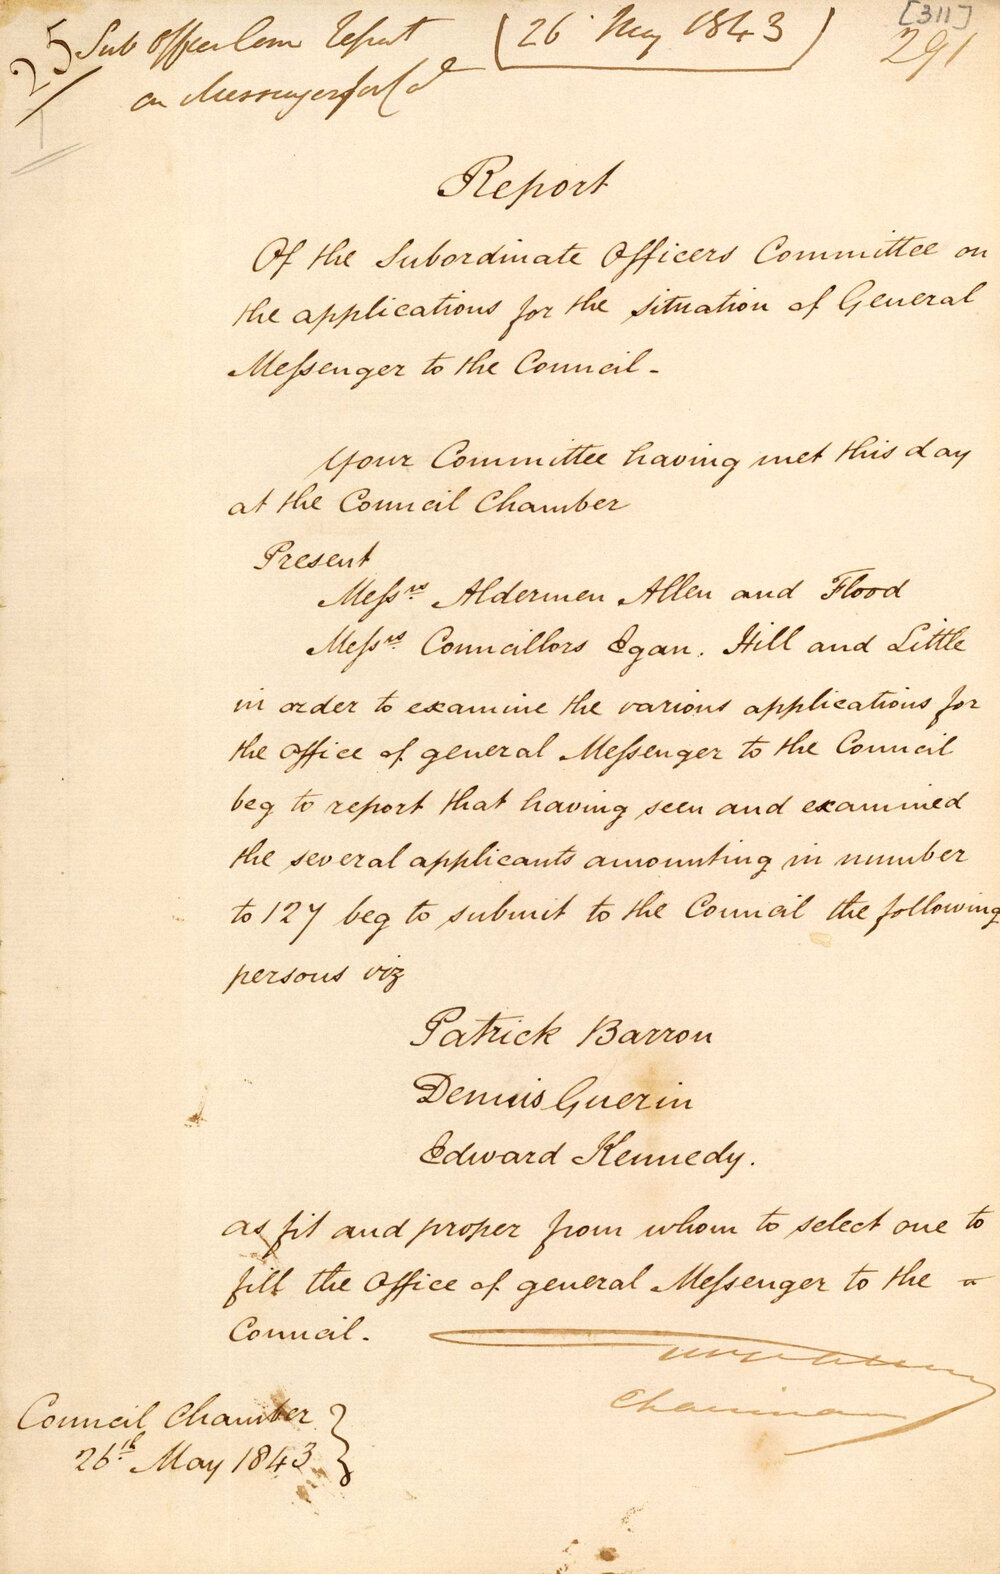 25
Sub Officer Com Report
on Messenger for Cl
(26 May 1843)
[311]
291
Report
Of the Subordinate Officers Committee on
the applications for the situation of General
Meſsenger to the Council -
Your Committee having met this day
at the Council Chamber
Present
Meſsrs. Aldermen Allen and Flood
Meſsrs. Councillors Egan. Hill and Little
in order to examine the various applications for
the office of general Meſsenger to the Council
beg to report that having seen and examined
the several applicants amounting in number
to 127 beg to submit to the Council the following
persons viz
Patrick Barron
Dennis Guerin
Edward Kennedy.
as fit and proper from whom to select one to
fill the Office of general Meſsenger to the
Council -
Chairman
Council Chamber
26th May 1843